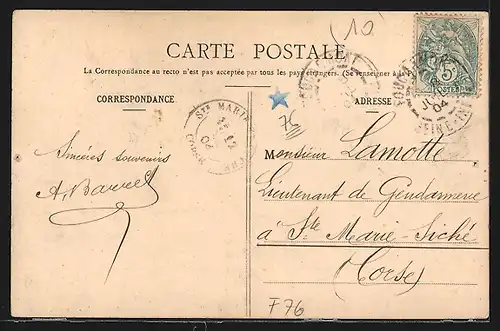 (10
CARTE POSTALE
La Correspondance au recto n'est pas acceptée par tous les pays étrangers. (Se renseigner à la
CORRESPONDANCE
ADRESSE
75
Ste MARIE
CORSE
04
SEINE-INF
5c
POSTES
Sincères souvenirs
A. Barret
Monsieur Lamotte
Lieutenant de Gendarmerie
à Ste Marie-Siché
(Corse)
F76